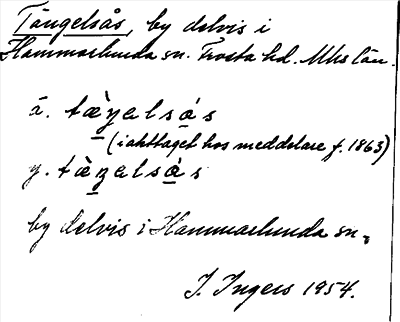 Tängelsås, by delvis i
Hammarlunda sn. Frosta hd. Mhs län.
ä. tæ̀ŋelsås
(iakttaget hos meddelare f. 1863)
y. tæ̀ŋelsås
by delvis i Hammarlunda sn.
I. Ingers 1954.